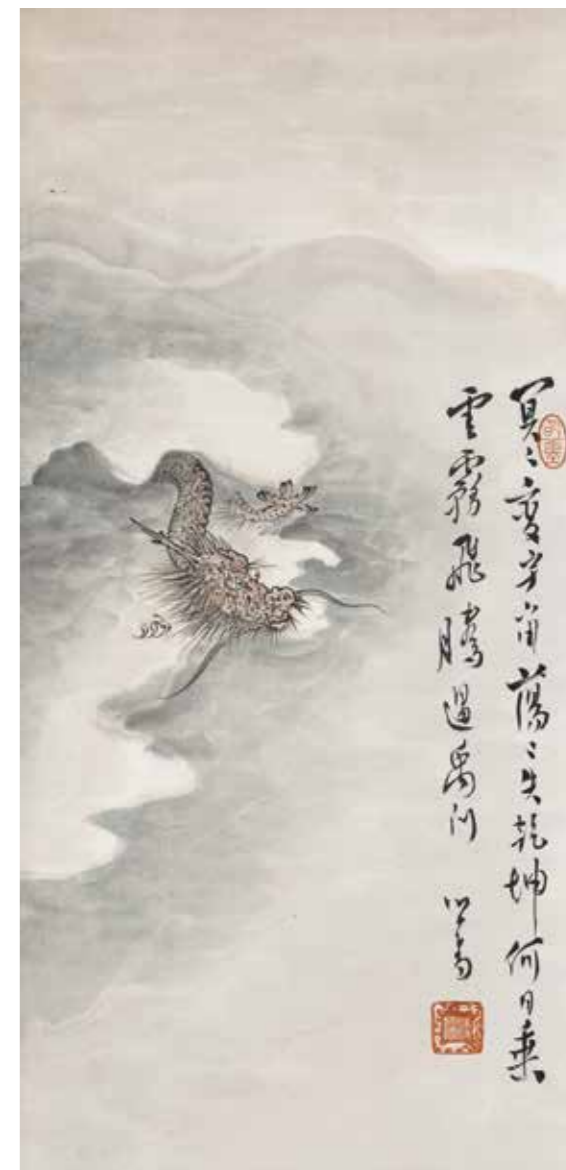 冥〻變宇宙蕩〻失乾坤何日乘
雲霧飛騰過禹門 心畬